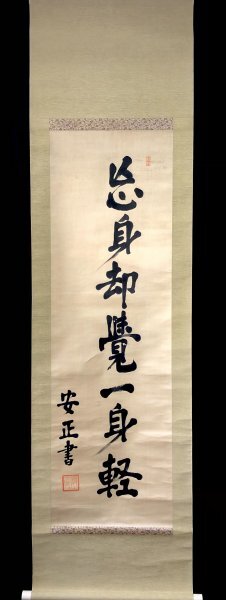 忘身却覺一身軽
安正書